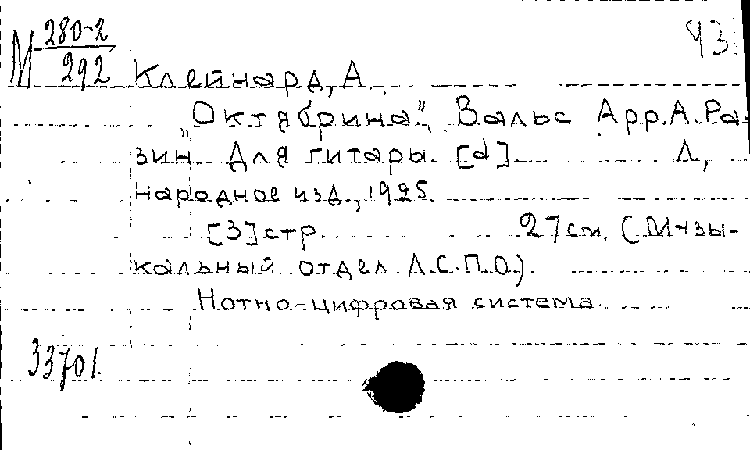 М 280-2
292
43
Клейнард, А.
„Октябрина". Вальс Арр. А. Ра-
зин. Для гитары. [d] Л.,
народное изд., 1925.
[3] стр. 27 см. (Музы-
кальный отдел Л.С.П.О.).
Нотно-цифровая система.
33701.